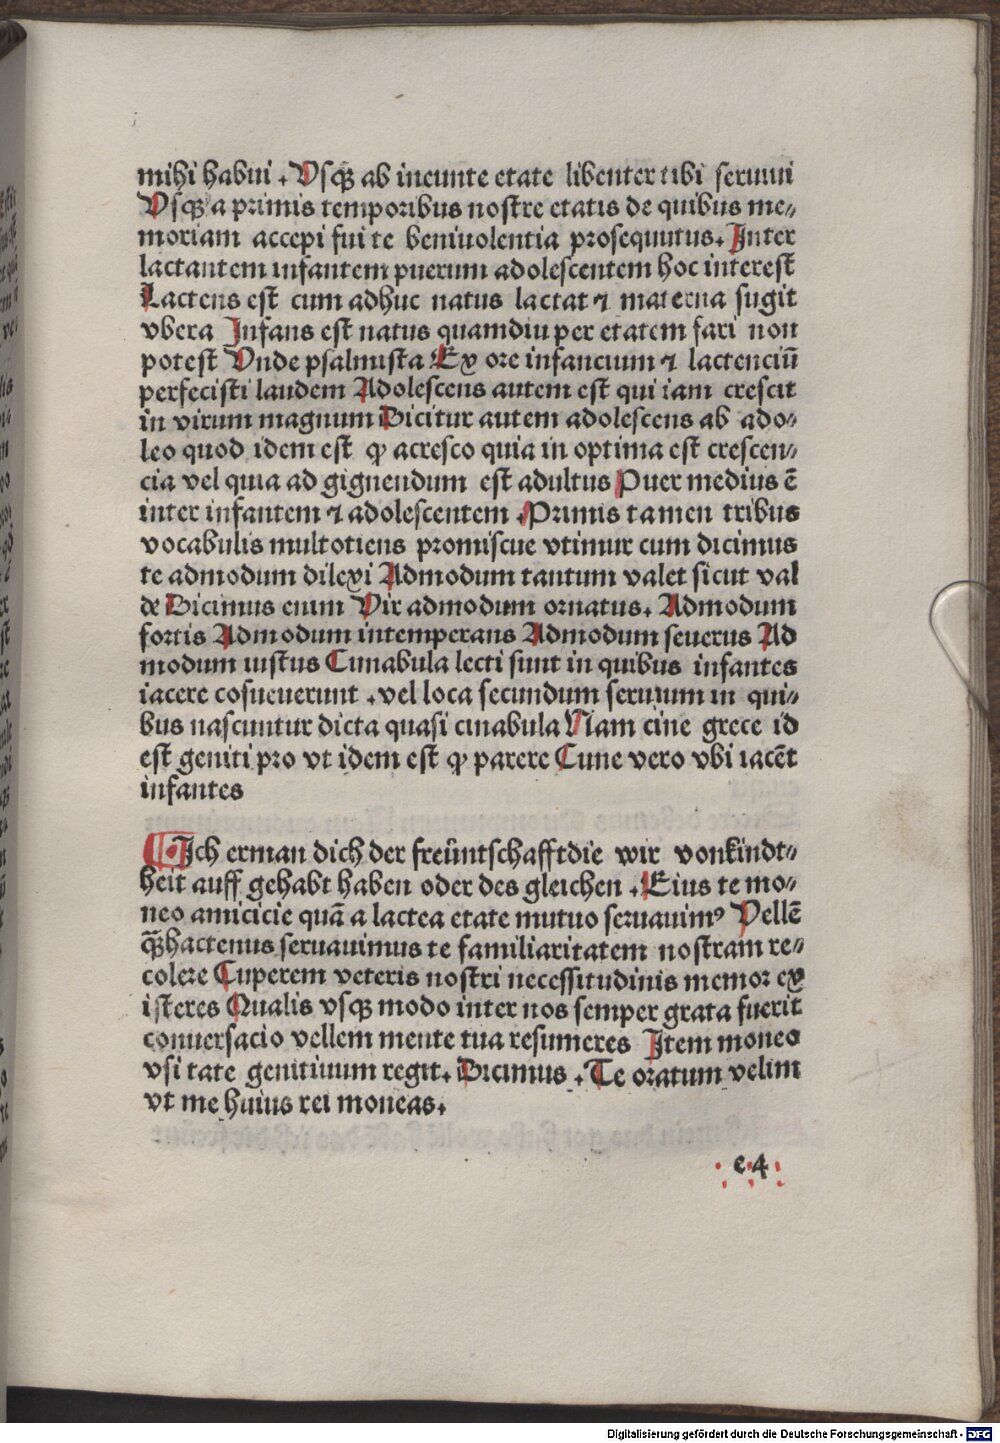 mihi habui . Vsqꝫ ab ineunte etate libenter tibi seruiui
Vsqꝫ a primis temporibus nostre etatis de quibus me⸗
moriam accepi fui te beniuolentia prosequutus. Inter
lactantem infantem puerum adolescentem hoc interest
Lactens est cum adhuc natus lactat ⁊ materna sugit
vbera Infans est natus quamdiu per etatem fari non
potest Vnde psalmista Ex ore infancium ⁊ lactenciū
perfecisti laudem Adolescens autem est qui iam crescit
in virum magnum Dicitur autem adolescens ab ado⸗
leo quod idem est ꝙ acresco quia in optima est crescen⸗
cia vel quia ad gignendum est adultus Puer medius ē
inter infantem ⁊ adolescentem .Primis tamen tribus
vocabulis multotiens promiscue vtimur cum dicimus
te admodum dilexi Admodum tantum valet sicut val
de Dicimus enim Vir admodum ornatus. Admodum
fortis Admodum intemperans Admodum seuerus Ad
modum iustus Cunabula lecti sunt in quibus infantes
iacere cosueuerunt . vel loca secundum seruium in qui⸗
bus nascuntur dicta quasi cinabula Nam cine grece id
est geniti pro vt idem est ꝙ parere Cune vero vbi iacēt
infantes
Ich erman dich der freüntschafftdie wir vonkindt⸗
heit auff gehabt haben oder des gleichen . Eius te mo⸗
neo amicicie quā a lactea etate mutuo seruauimꝰ Vellē
qꝫhactenus seruauimus te familiaritatem nostram re⸗
colere Cuperem veteris nostri necessitudinis memor ex
isteres Qualis vsqꝫ modo inter nos semper grata fuerit
conuersacio vellem mente tua resumeres Item moneo
vsi tate genitiuum regit. Dicimus . Te oratum velim
vt me huius rei moneas.
e4
Digitalisierung gefördert durch die Deutsche Forschungsgemeinschaft - DFG